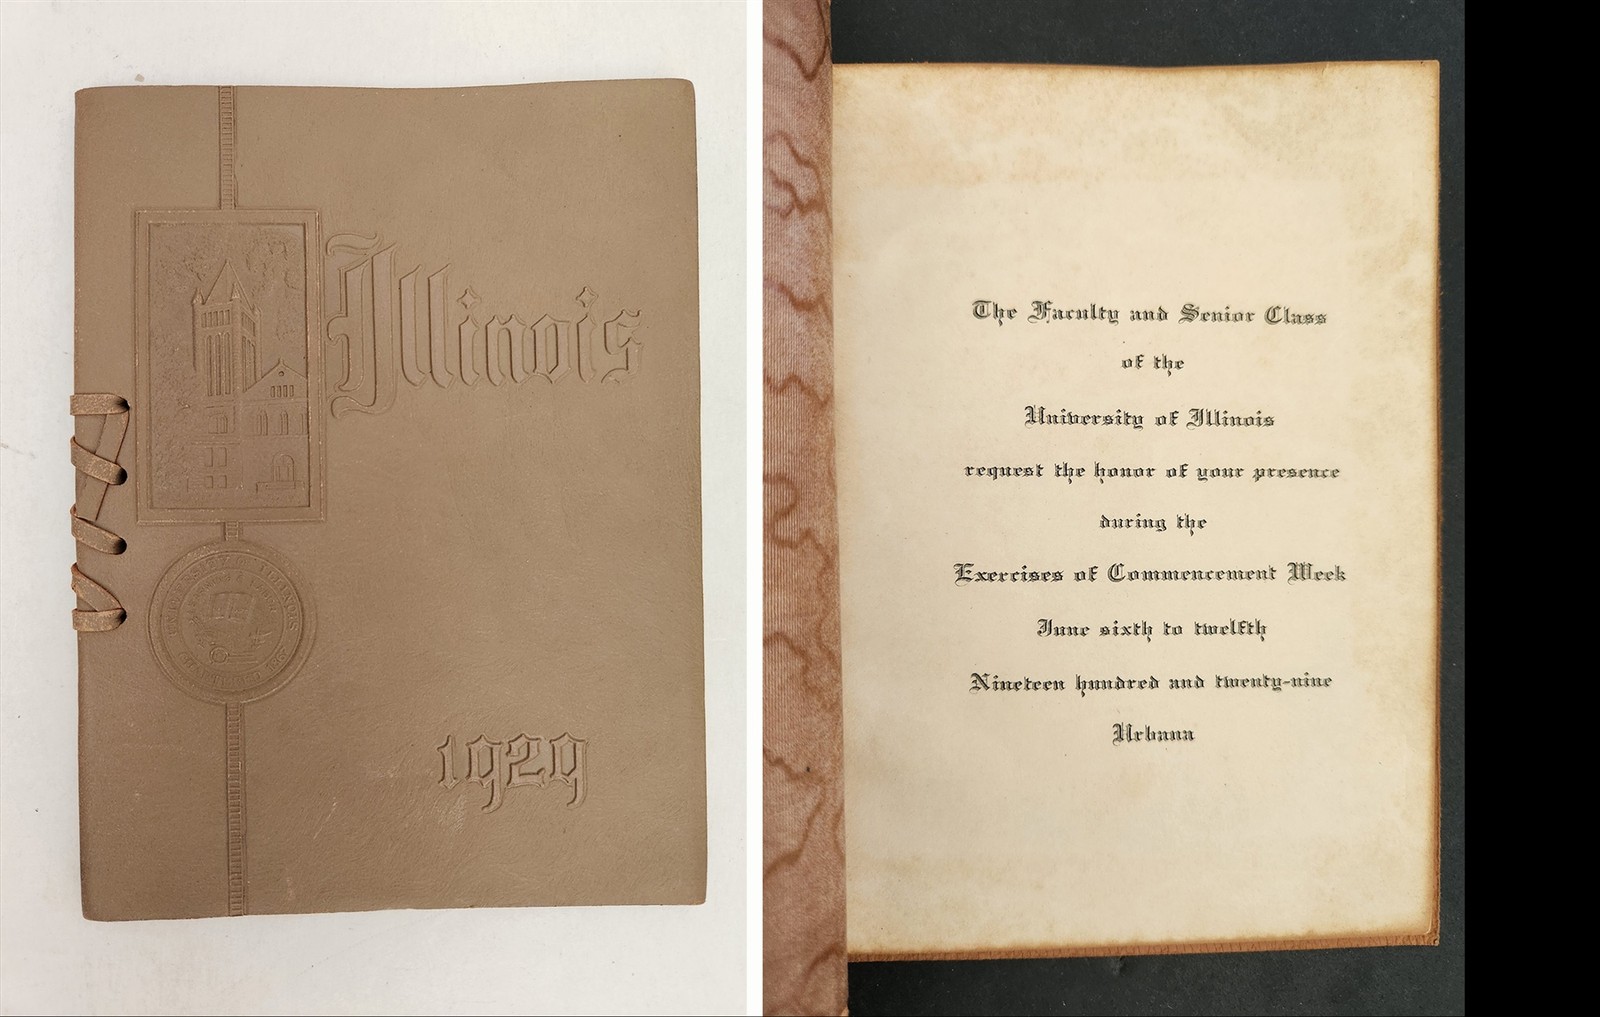 Illinois
UNIVERSITY OF ILLINOIS
1929
The Faculty and Senior Class
of the
University of Illinois
request the honor of your presence
during the
Exercises of Commencement Week
June sixth to twelfth
Nineteen hundred and twenty-nine
Urbana